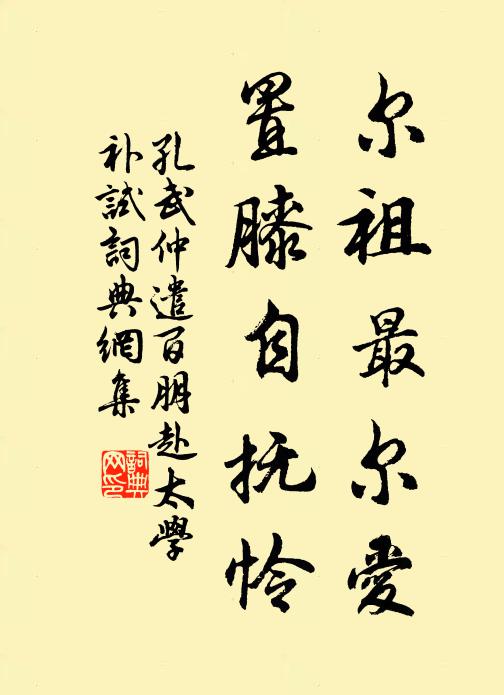 尔祖最尔爱
置膝自抚怜
孔武仲遣百朋赴太學
补試詞典網集
詞典
网印